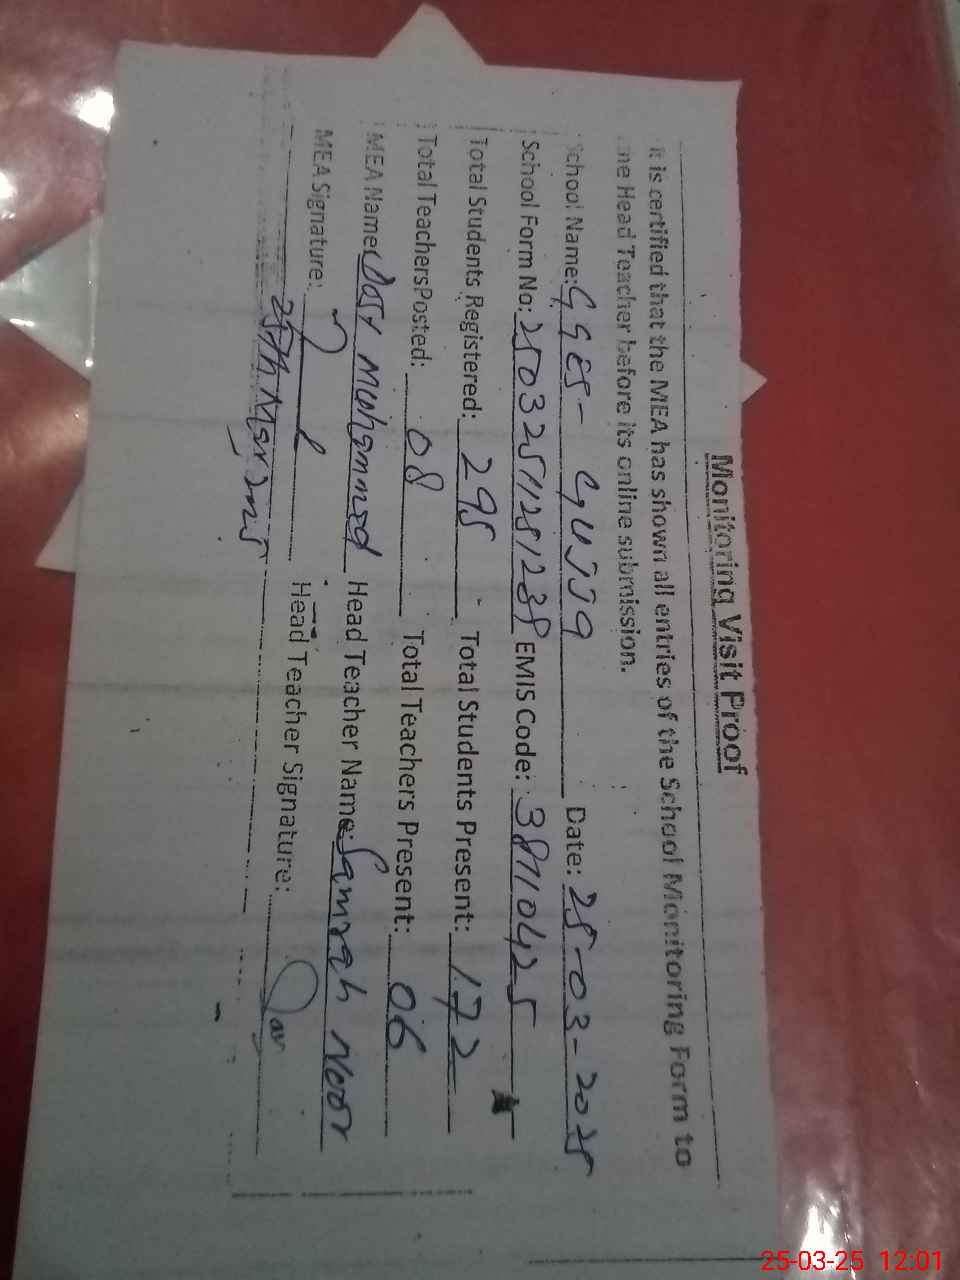 Monitoring Visit Proof
It is certified that the MEA has shown all entries of the School Monitoring Form to
the Head Teacher before its online submission.
School Name: GGES- GUJJA Date: 25-03-2025
School Form No: EMIS Code: 38110425
Total Students Registered: 295 Total Students Present: 172
Total TeachersPosted: 08 Total Teachers Present: 06
MEA Name: Dost Mohammad Head Teacher Name: Samrah Noor
MEA Signature: Head Teacher Signature:
25th Mar 2025
25-03-25 12:01